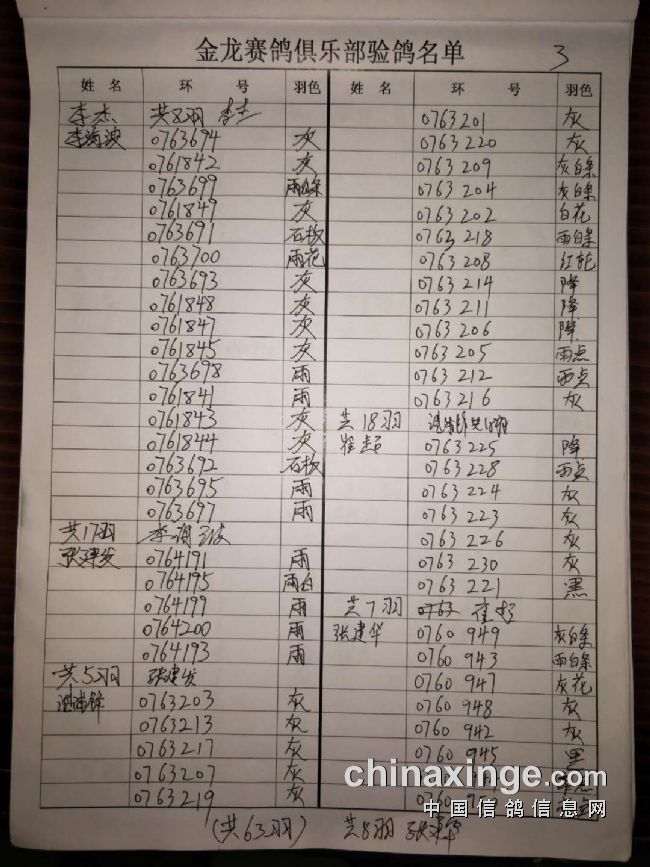 金龙赛鸽俱乐部验鸽名单
3
姓 名 环 号 羽色 姓 名 环 号 羽色
李杰 共8羽 李杰
李海波 0763694 灰
0761842 灰
0763699 雨白条
0761849 灰
0763691 石板
0763700 雨花
0763693 灰
0761848 灰
0761847 灰
0761845 灰
0763698 雨
0761841 雨
0761843 灰
0761844 灰
0763692 石板
0763695 雨
0763697 雨
共17羽 李海波
张建发 0764191 雨
0764195 雨白
0764199 雨
0764200 雨
0764193 雨
共5羽 张建发
0763203 灰
0763213 灰
0763217 灰
0763207 灰
0763219 灰
0763201 灰
0763220 灰
0763209 灰白条
0763204 灰白条
0763202 白花
0763218 雨白条
0763208 红轮
0763214 降
0763211 降
0763206 降
0763205 雨点
0763212 雨点
0763216 灰
共18羽
崔超 0763225 降
0763228 雨点
0763224 灰
0763223 灰
0763226 灰
0763230 灰
0763221 黑
共7羽 0763 崔超
张建华 0760949 灰白条
0760943 雨白条
0760947 灰花
0760948 灰
0760942 灰
0760945 黑
0760
(共63羽) 共8羽 张建华
chinaxinge.com
中国信鸽信息网